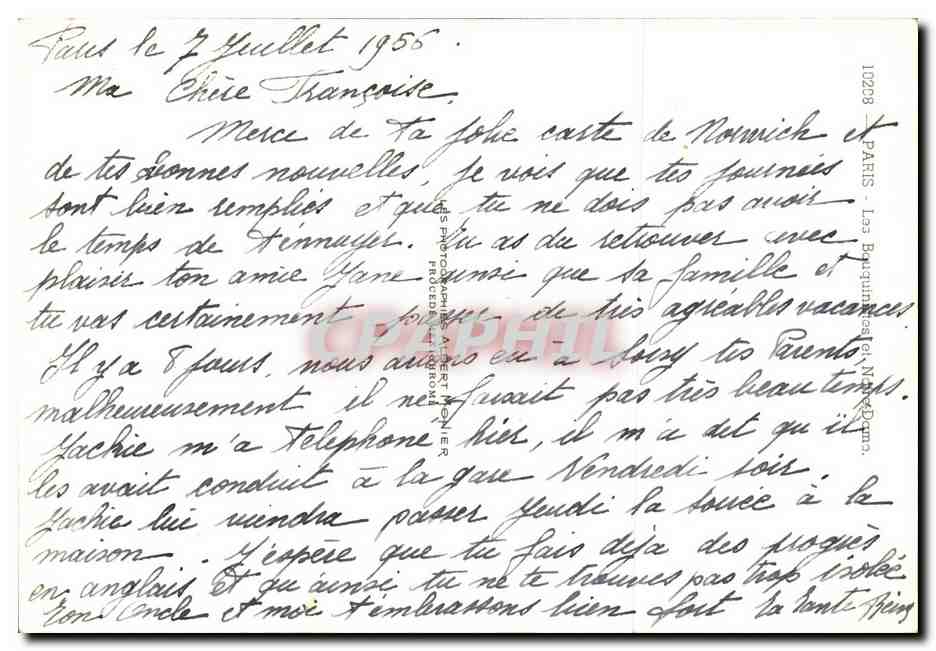 Paris le 7 Juillet 1956.
Ma Chère Françoise,
Merce de ta jolie carte de Norwich et
de tes bonnes nouvelles, je vois que tes journées
sont bien remplies et que tu ne dois pas avoir
le temps de t'ennuyer. Tu as du retrouver avec
plaisir ton amie Jane ainsi que sa famille et
tu vas certainement passer de très agréables vacances
Il y a 8 jours, nous avons eu à Soisy tes Parents,
malheureusement il ne faisait pas très beau temps.
Jackie m'a téléphoné, hier, il m'a dit qu'il
les avait conduit à la gare Vendredi soir.
Jackie lui viendra passer Jeudi la soirée à la
maison. J'espère que tu fais déja des progrès
en anglais et qu'ainsi tu ne te trouves pas trop isolée
Ton Oncle et moi t'embrassons bien fort ta tante
10208 - PARIS - Les Bouquinistes et Notre-Dame.
LES PHOTOGRAPHIES ALBERT MONIER
CPAPHIL